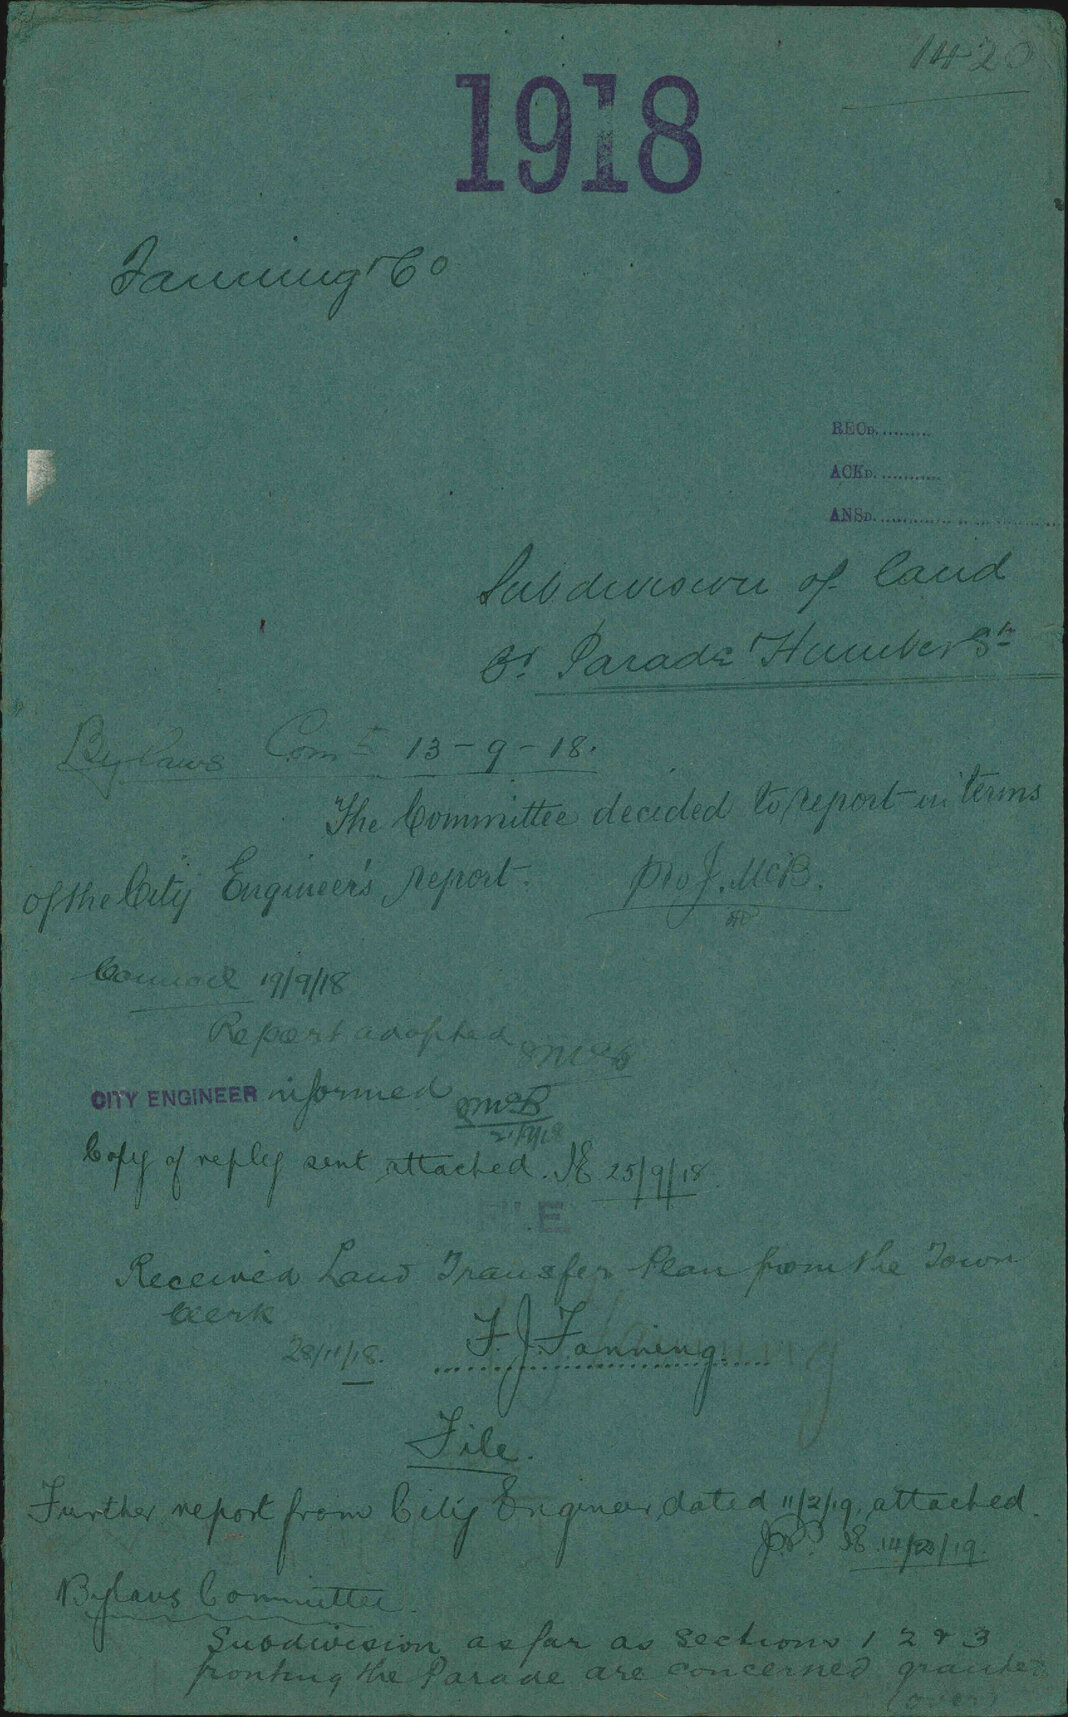 1420
1918
Fanning & Co
RECD. .........
ACKD. ...........
ANSD. ..............................
Subdivision of land
Parade & Humber St
Bylaws Comtee 13-9-18.
The Committee decided to report in terms
of the City Engineer's report. pro J. McB.
Council 19/9/18
Report adopted
CITY ENGINEER informed
Copy of reply sent attached. 25/9/18.
FILE
Received Land Transfer Plan from the Town
Clerk
28/11/18. F. J. Fanning.
File.
Further report from City Engineer dated 11/2/19, attached.
Bylaws Committee
Subdivision as far as sections 1 2 & 3
fronting the Parade are concerned granted
(over)